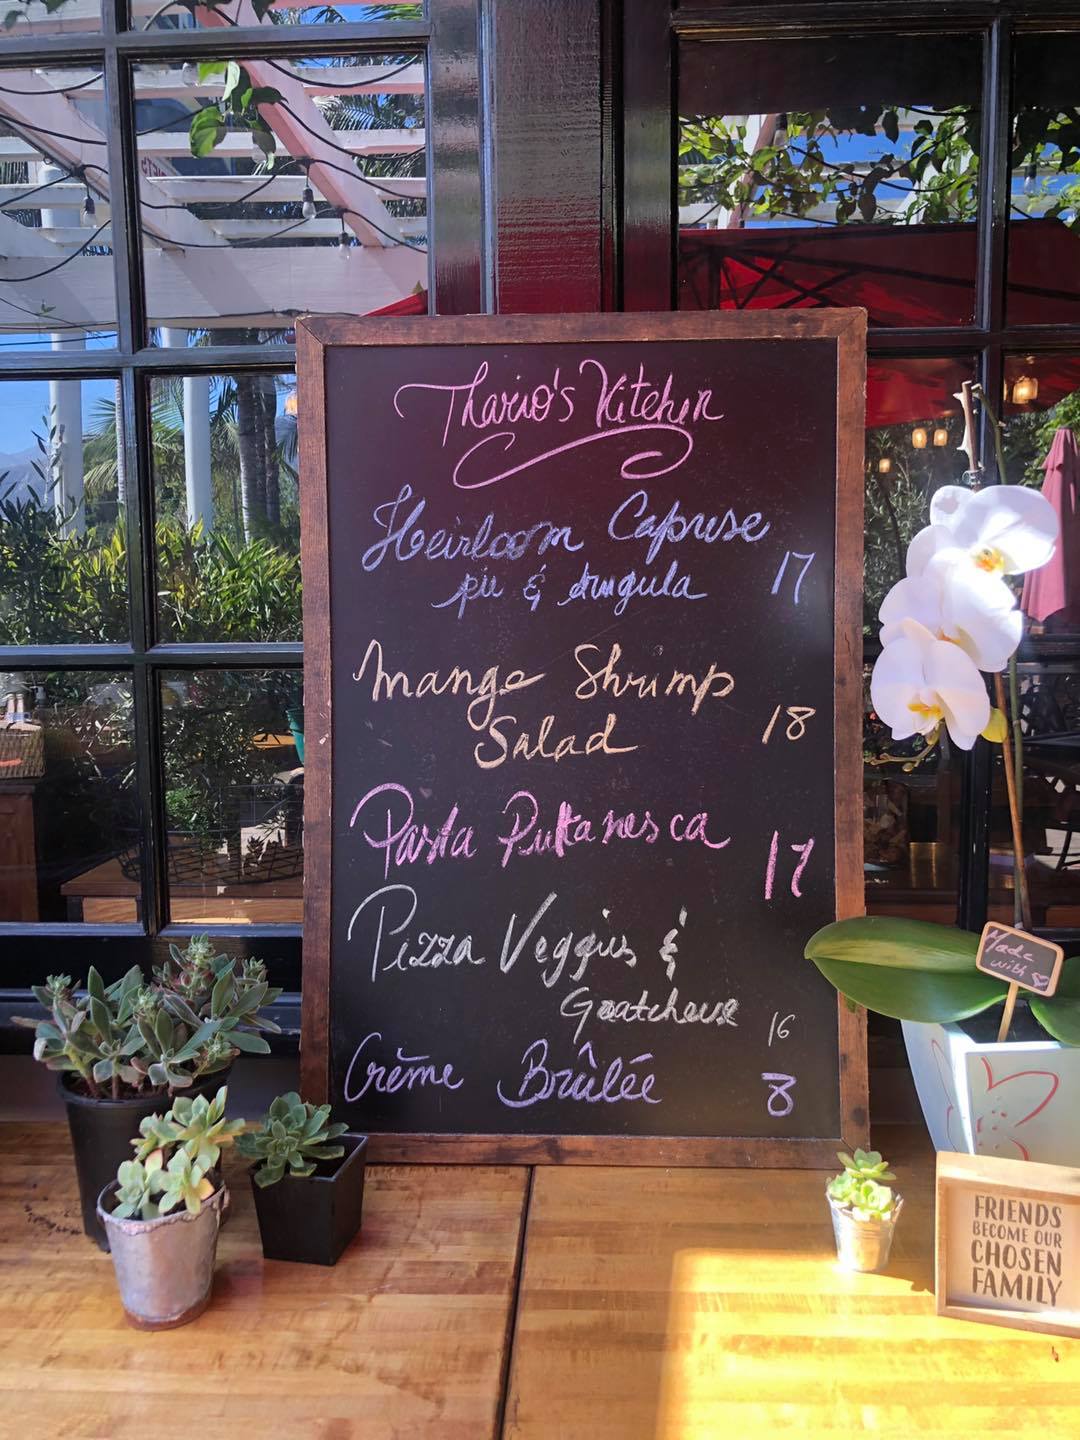 Thario's Kitchen
Heirloom Caprese
pie & Arugula 17
Mango Shrimp
Salad 18
Pasta Puttanesca 17
Pizza Veggies &
Goatcheese 16
Crème Brûlée 8
Made
with
FRIENDS
BECOME OUR
CHOSEN
FAMILY